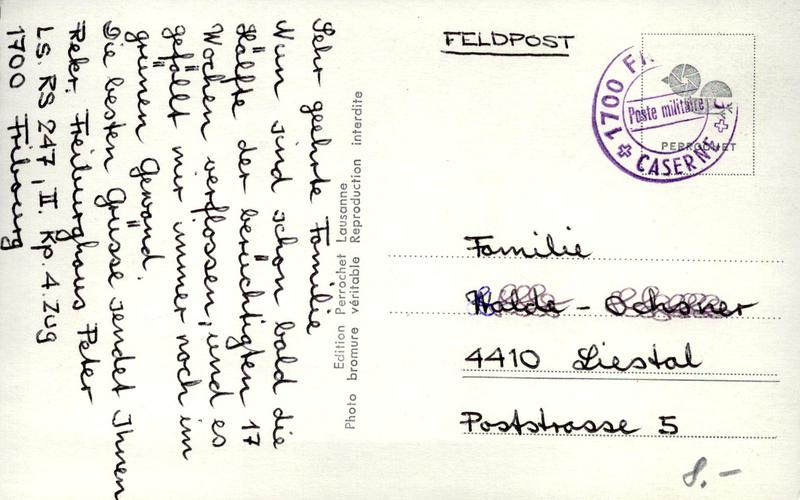 Sehr geehrte Familie
Nun sind schon bald die
Hälfte der berüchtigten 17
Wochen verflossen, und es
gefällt mir immer noch im
grünen Gewand.
Die besten Grüsse sendet Ihnen
Rekr. Freiburghaus Peter
LS. RS 247, II. Kp. 4. Zug
1700 Fribourg
Edition Perrochet Lausanne
Photo bromure véritable Reproduction interdite
FELDPOST
1700
Poste militaire
CASERNE
Familie
4410 Liestal
Poststrasse 5
8.-